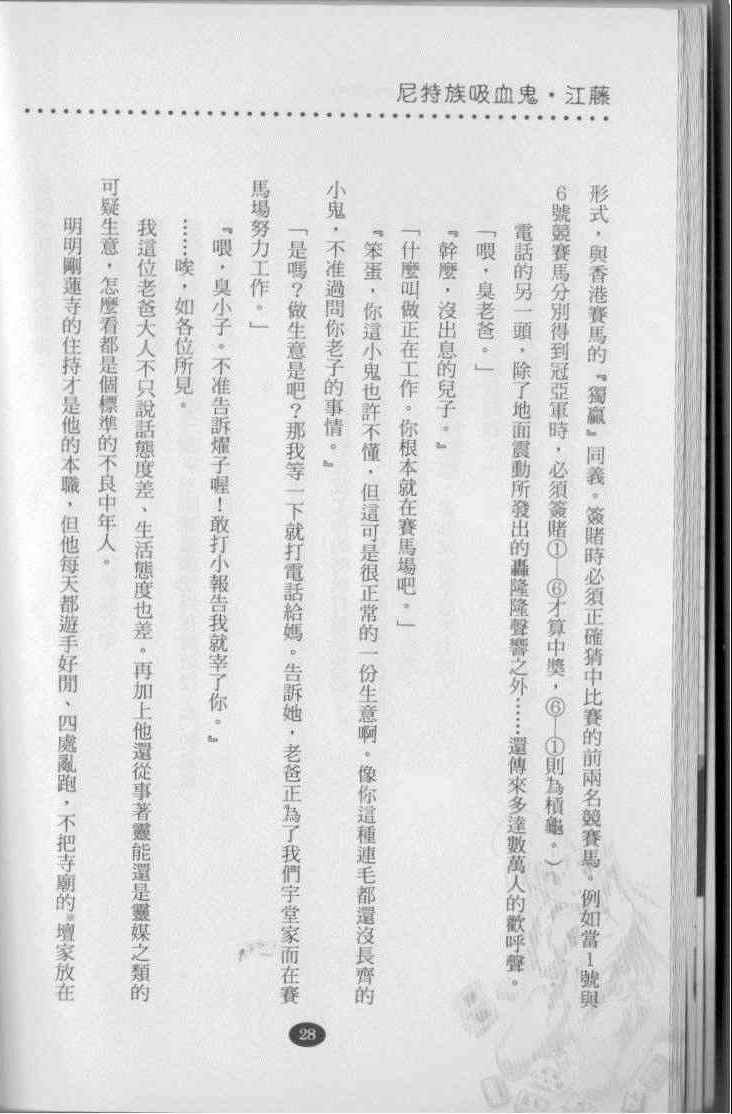 尼特族吸血鬼・江藤
形式，與香港賽馬的『獨贏』同義。簽賭時必須正確猜中比賽的前兩名競賽馬。例如當1號與
6號競賽馬分別得到冠亞軍時，必須簽賭①—⑥才算中獎，⑥—①則為槓龜。）
電話的另一頭，除了地面震動所發出的轟隆隆聲響之外……還傳來多達數萬人的歡呼聲。
「喂，臭老爸。」
『幹麼，沒出息的兒子。』
「什麼叫做正在工作。你根本就在賽馬場吧。」
『笨蛋，你這小鬼也許不懂，但這可是很正常的一份生意啊。像你這種連毛都還沒長齊的
小鬼，不准過問你老子的事情。』
「是嗎？做生意是吧？那我等一下就打電話給媽。告訴她，老爸正為了我們宇堂家而在賽
馬場努力工作。」
『喂，臭小子。不准告訴燿子喔！敢打小報告我就宰了你。』
……唉，如各位所見。
我這位老爸大人不只說話態度差、生活態度也差。再加上他還從事著靈能還是靈媒之類的
可疑生意，怎麼看都是個標準的不良中年人。
明明剛蓮寺的住持才是他的本職，但他每天都遊手好閒、四處亂跑，不把寺廟的※壇家放在
28